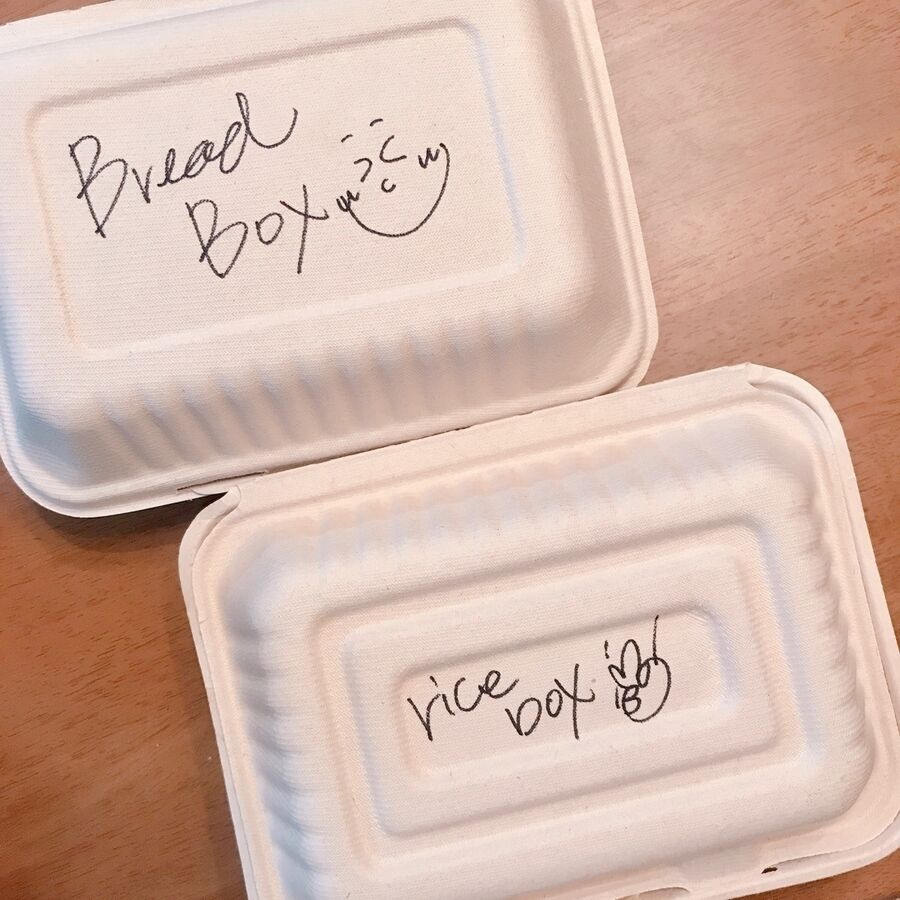 Bread
Box
rice
box